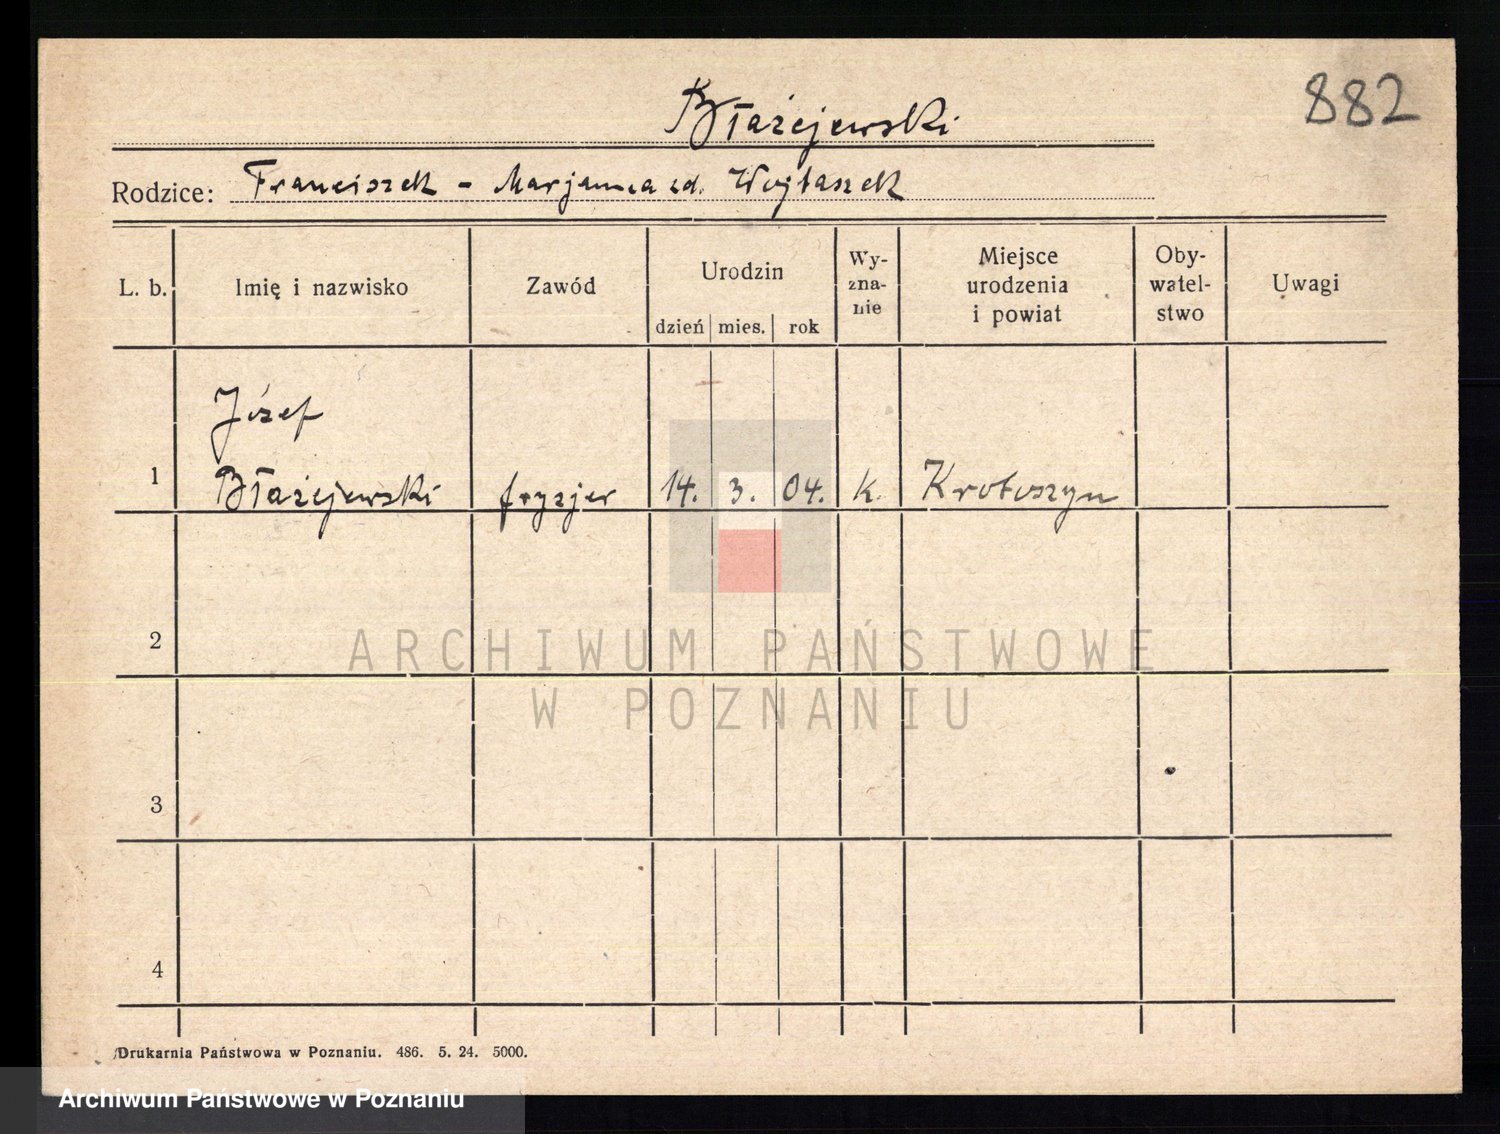 882
Błażejewski
Rodzice: Franciszek - Marjanna zd. Wojtaszek
L. b. Imię i nazwisko Zawód Urodzin dzień mies. rok Wy-zna-nie Miejsce urodzenia i powiat Oby-watel-stwo Uwagi
Józef
1 Błażejewski fryzjer 14. 3. 04. k. Krotoszyn
2
ARCHIWUM PAŃSTWOWE
W POZNANIU
3
4
Drukarnia Państwowa w Poznaniu. 486. 5. 24. 5000.
Archiwum Państwowe w Poznaniu